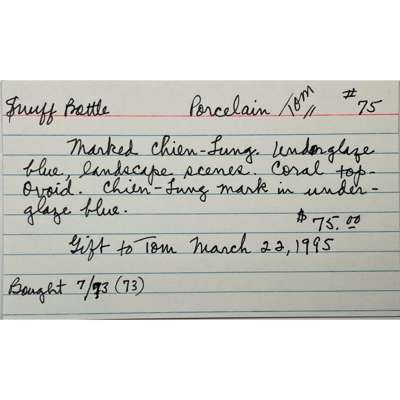 Snuff Bottle Porcelain Tom # 75
Marked Chien-Lung. Underglaze
blue, landscape scenes. Coral top-
Ovoid. Chien-Lung mark in under-
glaze blue.
$75.00
Gift to Tom March 22, 1995
Bought 7/73 (73)